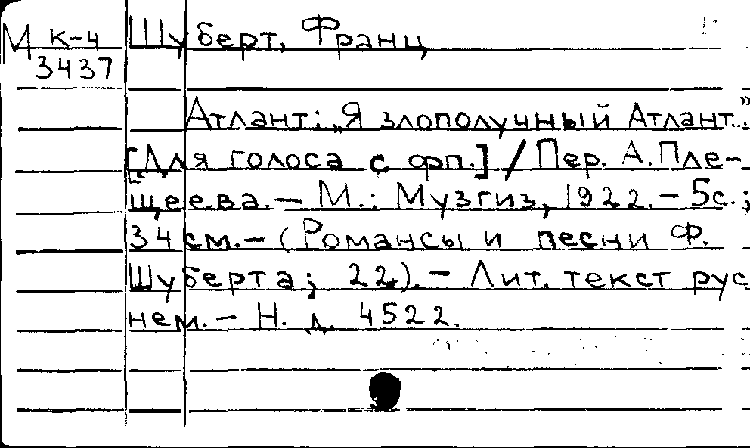 М к-4 Шуберт, Франц
3437
Атлант: „Я злополучный Атлант..."
[Для голоса с фп.] / Пер. А. Пле-
щеева. – М.: Музгиз, 1922. – 5с.;
34 см. – (Романсы и песни Ф.
Шуберта; 22). – Лит. текст рус
нем. – Н. д. 4522.